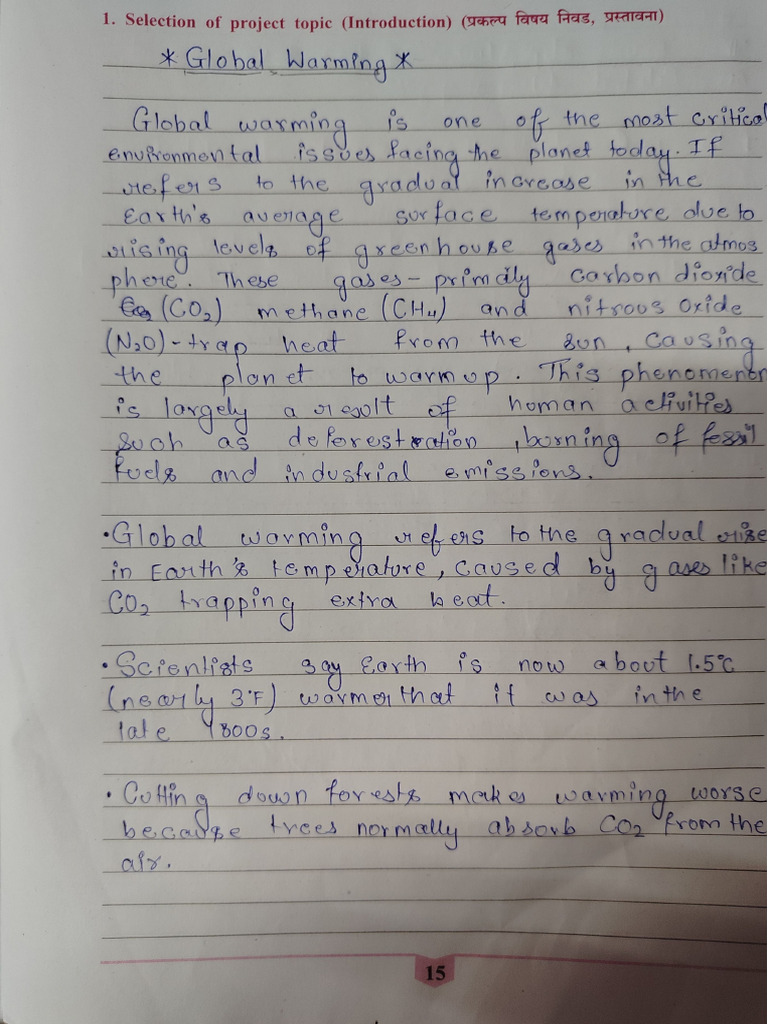 1. Selection of project topic (Introduction) (प्रकल्प विषय निवड, प्रस्तावना)
* Global Warming *
Global warming is one of the most critical
environmental issues facing the planet today. If
refers to the gradual increase in the
Earth's average surface temperature due to
rising levels of greenhouse gases in the atmos
phere. These gases - primdly carbon dioxide
(CO₂) methane (CH₄) and nitrous oxide
(N₂O) - trap heat from the sun, causing
the planet to warm up. This phenomenon
is largely a result of human activities
such as deforestration, burning of fessil
fuels and industrial emissions.
• Global warming refers to the gradual rise
in Earth's temperature, caused by gases like
CO₂ trapping extra heat.
• Scientists say Earth is now about 1.5°C
(nearly 3°F) warmer that it was in the
late 1800s.
• Cutting down forests makes warming worse
because trees normally absorb CO₂ from the
air.
15